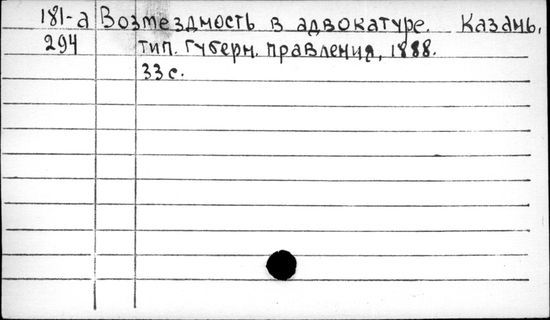 181-а Возмездность в адвокатуре. Казань,
294 тип. Губерн. правления, 1888.
33 с.